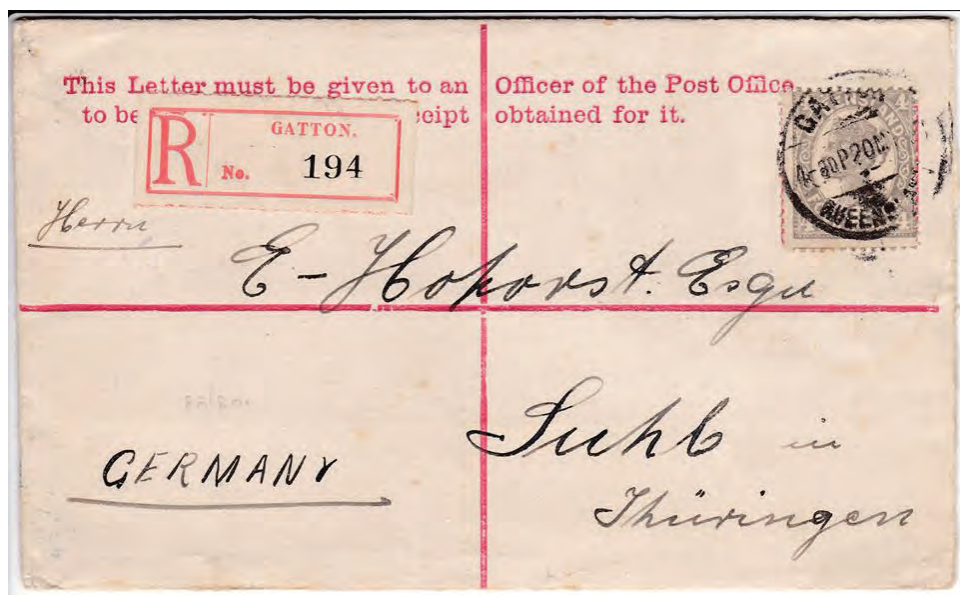 This Letter must be given to an Officer of the Post Office
to be ceipt obtained for it.
R GATTON.
No. 194
QUEENS
Herrn
E - Hoporst. Esqu
Suhl in
Thüringen
GERMANY